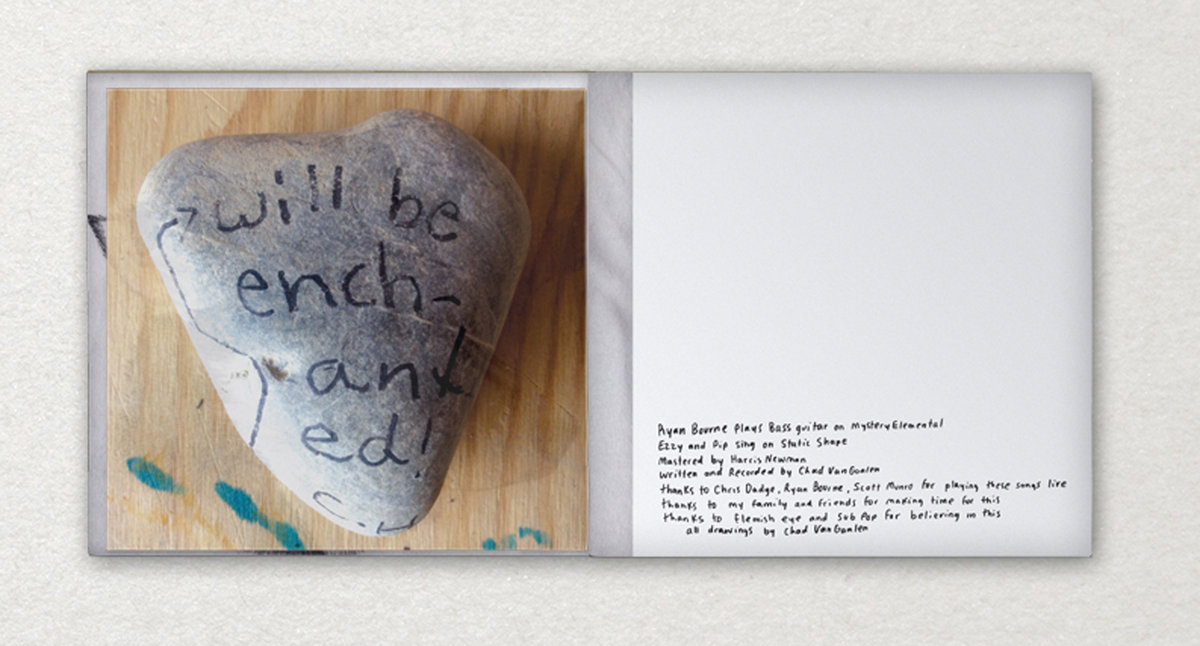 will be
ench-
ant
ed!
C.H
Ryan Bourne plays Bass guitar on Mystery Elemental
Ezzy and Pip sing on Static Shape
Mastered by Harris Newman
written and Recorded by Chad VanGaalen
thanks to Chris Dadge, Ryan Bourne, Scott Munro for playing these songs live
thanks to my family and friends for making time for this
thanks to Flemish eye and Sub Pop for believing in this
all drawings by Chad VanGaalen